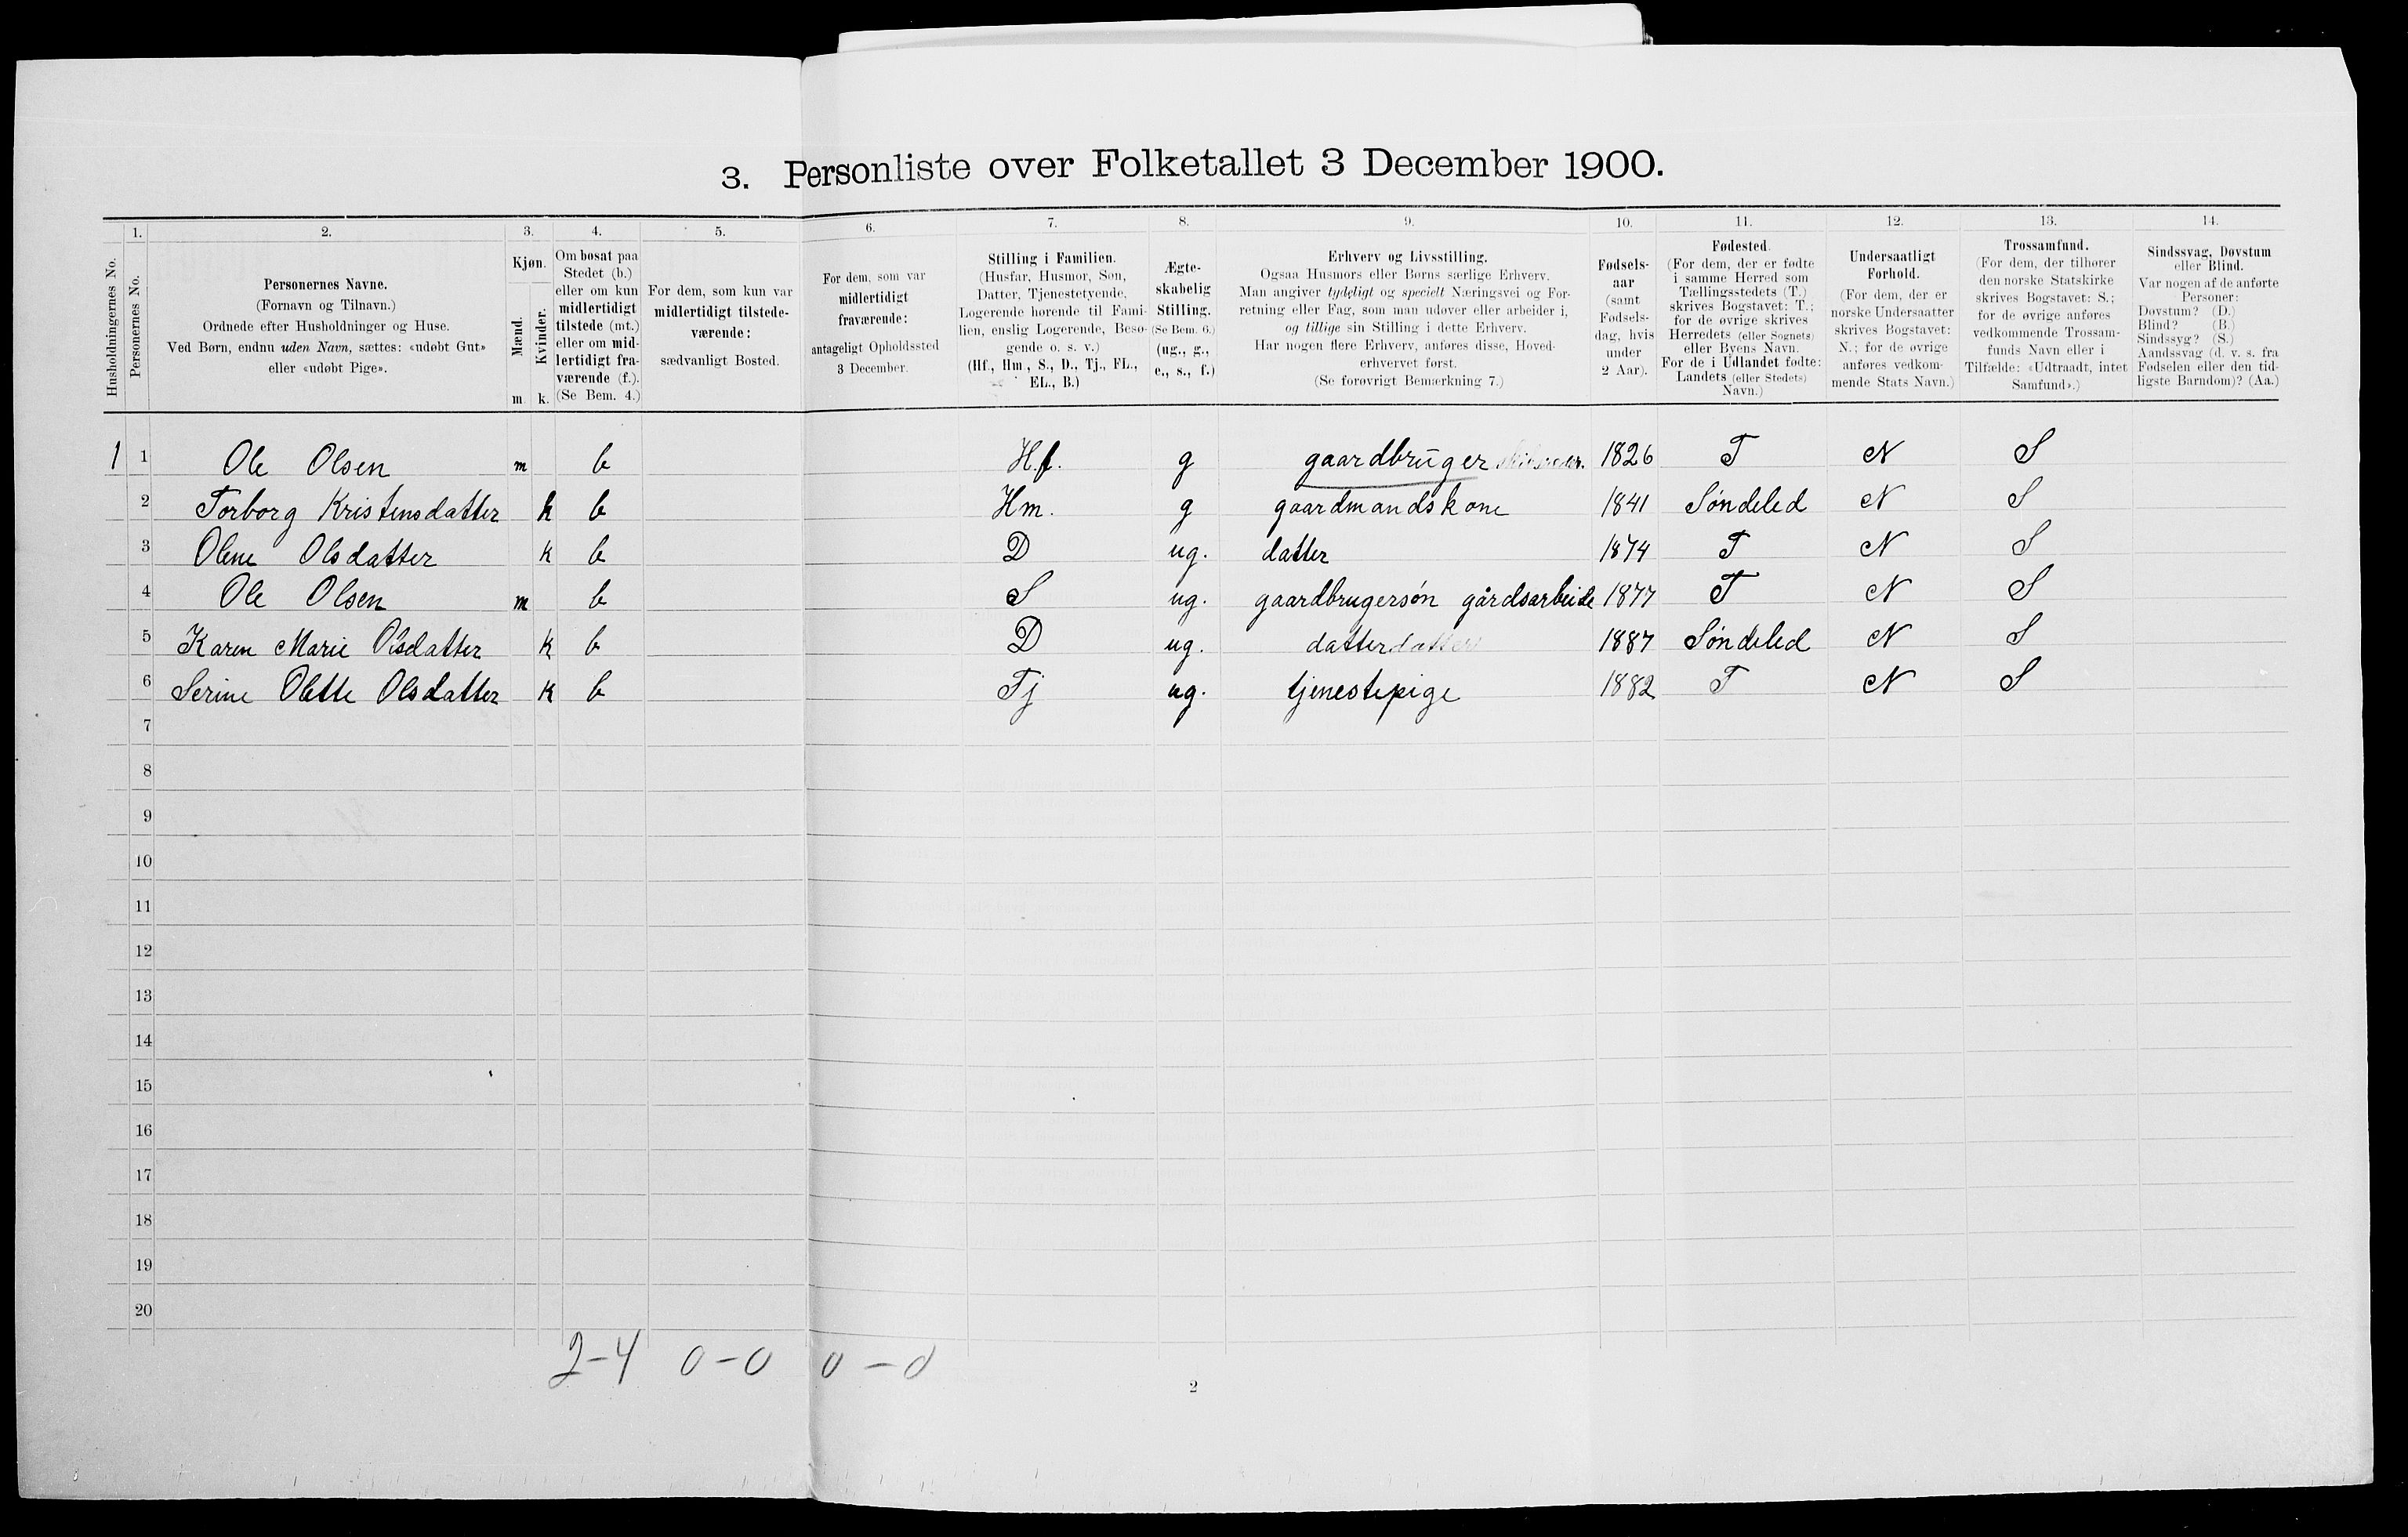 3. Personliste over Folketallet 3 December 1900.
1. 2. 3. 4. 5. 6. 7. 8. 9. 10. 11. 12. 13. 14.
Husholdningernes No.
Personernes No.
Personernes Navne.
(Fornavn og Tilnavn.)
Ordnede efter Husholdninger og Huse.
Ved Børn, endnu uden Navn, sættes: «udøbt Gut»
eller «udøbt Pige».
Kjøn.
Mænd.
Kvinder.
m. k.
Om bosat paa
Stedet (b.)
eller om kun
midlertidigt
tilstede (mt.)
eller om mid-
lertidigt fra-
værende (f.).
(Se Bem. 4.)
For dem, som kun var
midlertidigt tilstede-
værende:
sædvanligt Bosted.
For dem, som var
midlertidigt
fraværende:
antageligt Opholdssted
3 December.
Stilling i Familien.
(Husfar, Husmor, Søn,
Datter, Tjenestetyende,
Logerende hørende til Fami-
lien, enslig Logerende, Besø-
gende o. s. v.)
(Hf., Hm., S., D., Tj., FL.,
EL., B.)
Ægte-
skabelig
Stilling.
(Se Bem. 6.)
(ug., g.,
e., s., f.)
Erhverv og Livsstilling.
Ogsaa Husmors eller Børns særlige Erhverv.
Man angiver tydeligt og specielt Næringsvei og For-
retning eller Fag, som man udøver eller arbeider i,
og tillige sin Stilling i dette Erhverv.
Har nogen flere Erhverv, anføres disse, Hoved-
erhvervet først.
(Se forøvrigt Bemærkning 7.)
Fødsels-
aar
(samt
Fødsels-
dag, hvis
under
2 Aar).
Fødested.
(For dem, der er fødte
i samme Herred som
Tællingsstedets (T.)
skrives Bogstavet: T.;
for de øvrige skrives
Herredets (eller Sognets)
eller Byens Navn.
For de i Udlandet fødte:
Landets (eller Stedets)
Navn.)
Undersaatligt
Forhold.
(For dem, der er
norske Undersaatter
skrives Bogstavet:
N.; for de øvrige
anføres vedkom-
mende Stats Navn.)
Trossamfund.
(For dem, der tilhører
den norske Statskirke
skrives Bogstavet: S.;
for de øvrige anføres
vedkommende Trossam-
funds Navn eller i
Tilfælde: «Udtraadt, intet
Samfund».)
Sindssvag, Døvstum
eller Blind.
Var nogen af de anførte
Personer:
Døvstum? (D.)
Blind? (B.)
Sindssyg? (S.)
Aandssvag (d. v. s. fra
Fødselen eller den tid-
ligste Barndom)? (Aa.)
1 1 Ole Olsen m b H.f. g gaardbruger 1826 T N S
2 Torborg Kristensdatter k b Hm. g gaardmandskone 1841 Søndeled N S
3 Olene Olsdatter k b D ug. datter 1874 T N S
4 Ole Olsen m b S ug. gaardbrugersøn gårdsarbeide 1877 T N S
5 Karen Marie Olsdatter k b D ug. datterdatter 1887 Søndeled N S
6 Serine Olette Olsdatter k b Tj ug. tjenestepige 1882 T N S
7
8
9
10
11
12
13
14
15
16
17
18
19
20
2-4 0-0 0-0
2